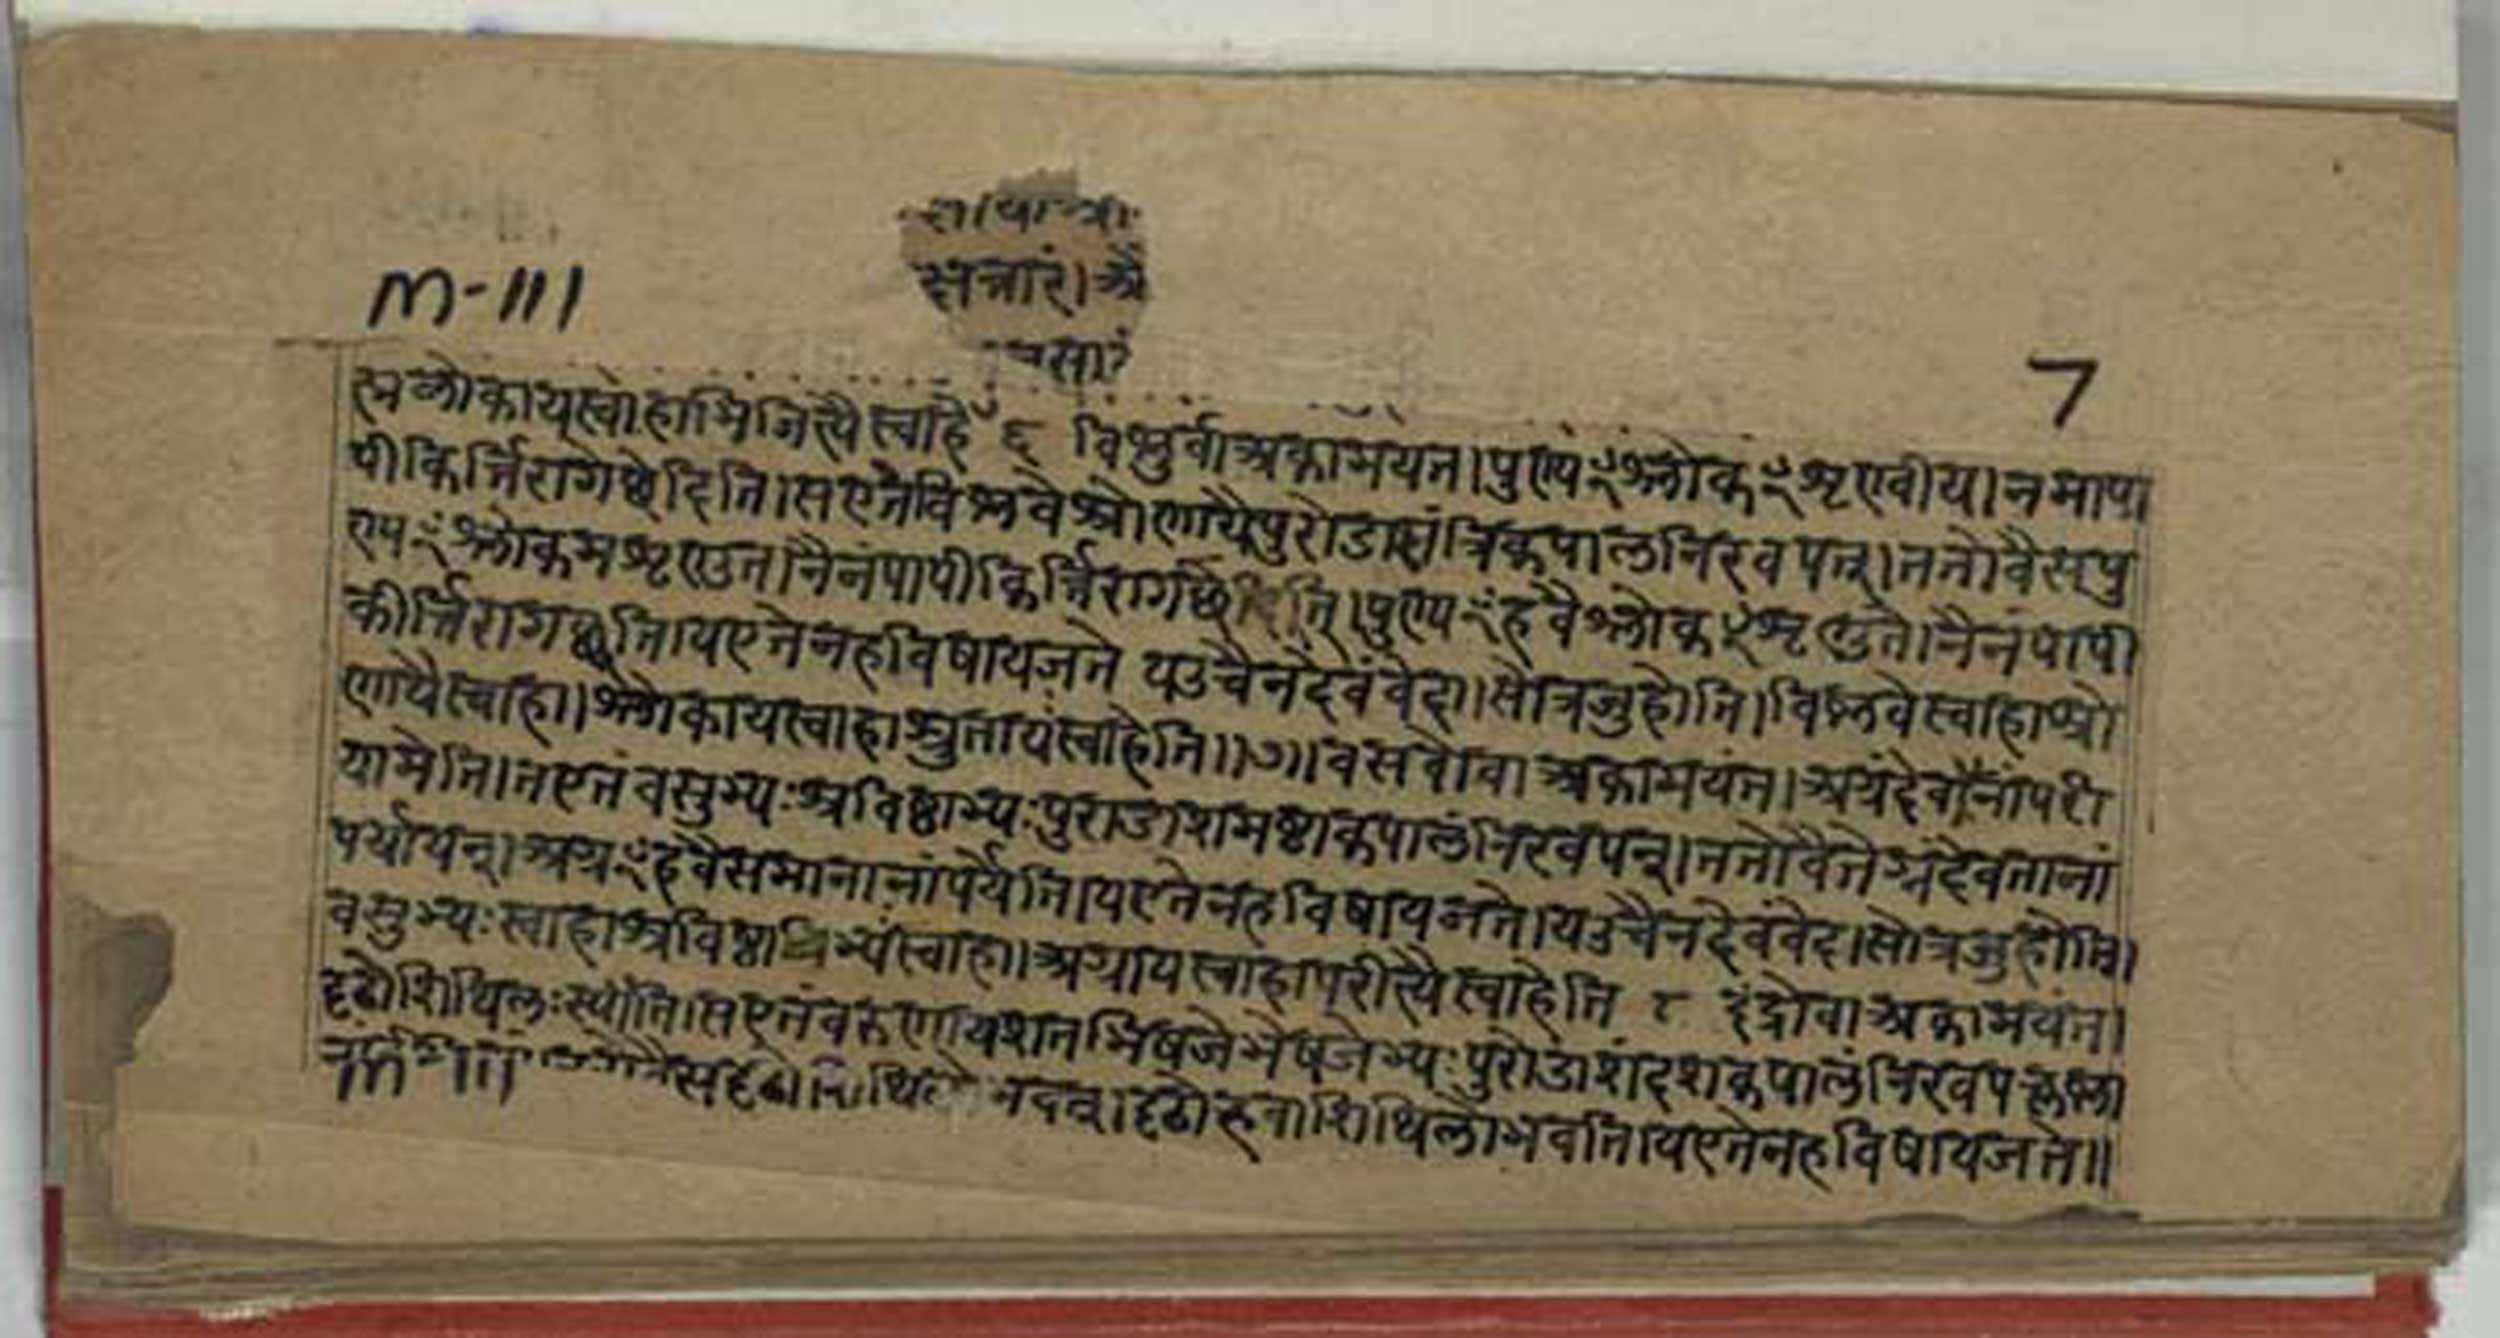 सत्रारं। श्रै
M-111
7
ह्मलोकाय स्वाहाभिजित्यै स्वाहे ६ विष्णुर्वा अकामयत। पुण्यꣳ श्लोकꣳ शृण्वीय। न मा पा
पी कीर्त्तिरागच्छेदिति। स एतं विष्णवे श्रोणायै पुरोडाशं त्रिकपालं निरवपत्। ततो वै स पु
ण्यꣳ श्लोकमशृणुत। नैनं पापी कीर्त्तिरागछेदिति। पुण्यꣳ ह वै श्लोकꣳ शृणुते। नैनं पापी
कीर्त्तिरागच्छति। य एतेन हविषा यजते य उ चैनदेवं वेद॥ सोत्र जुहोति। विष्णवे स्वाहा श्रो
णायै स्वाहा॥ श्लोकाय स्वाहा श्रुताय स्वाहेति॥ ७॥ वसवो वा अकामयंत। अग्रं देवतानां परी
यामेति। त एतं वसुभ्यः श्रविष्ठाभ्यः पुरोडाशमष्टाकपालं निरवपन्। ततो वै तेग्रं देवतानां
पर्यायन्। अग्रꣳ ह वै समानानां पर्येति। य एतेन हविषा यजते। य उ चैनदेवं वेद। सोत्र जुहोति।
वसुभ्यः स्वाहा श्रविष्ठाभ्यः स्वाहा॥ अग्राय स्वाहा परीत्यै स्वाहेति ८ इंद्रो वा अकामयत।
दृढोशिथिलः स्यामिति। स एतं वरुणाय शतभिषजे भेषजेभ्यः पुरोडाशं दशकपालं निरवपत्कृष्णा
स दृढोशिथिलोभवत्। दृढो ह वा अशिथिलो भवति। य एतेन हविषा यजते॥
M-111